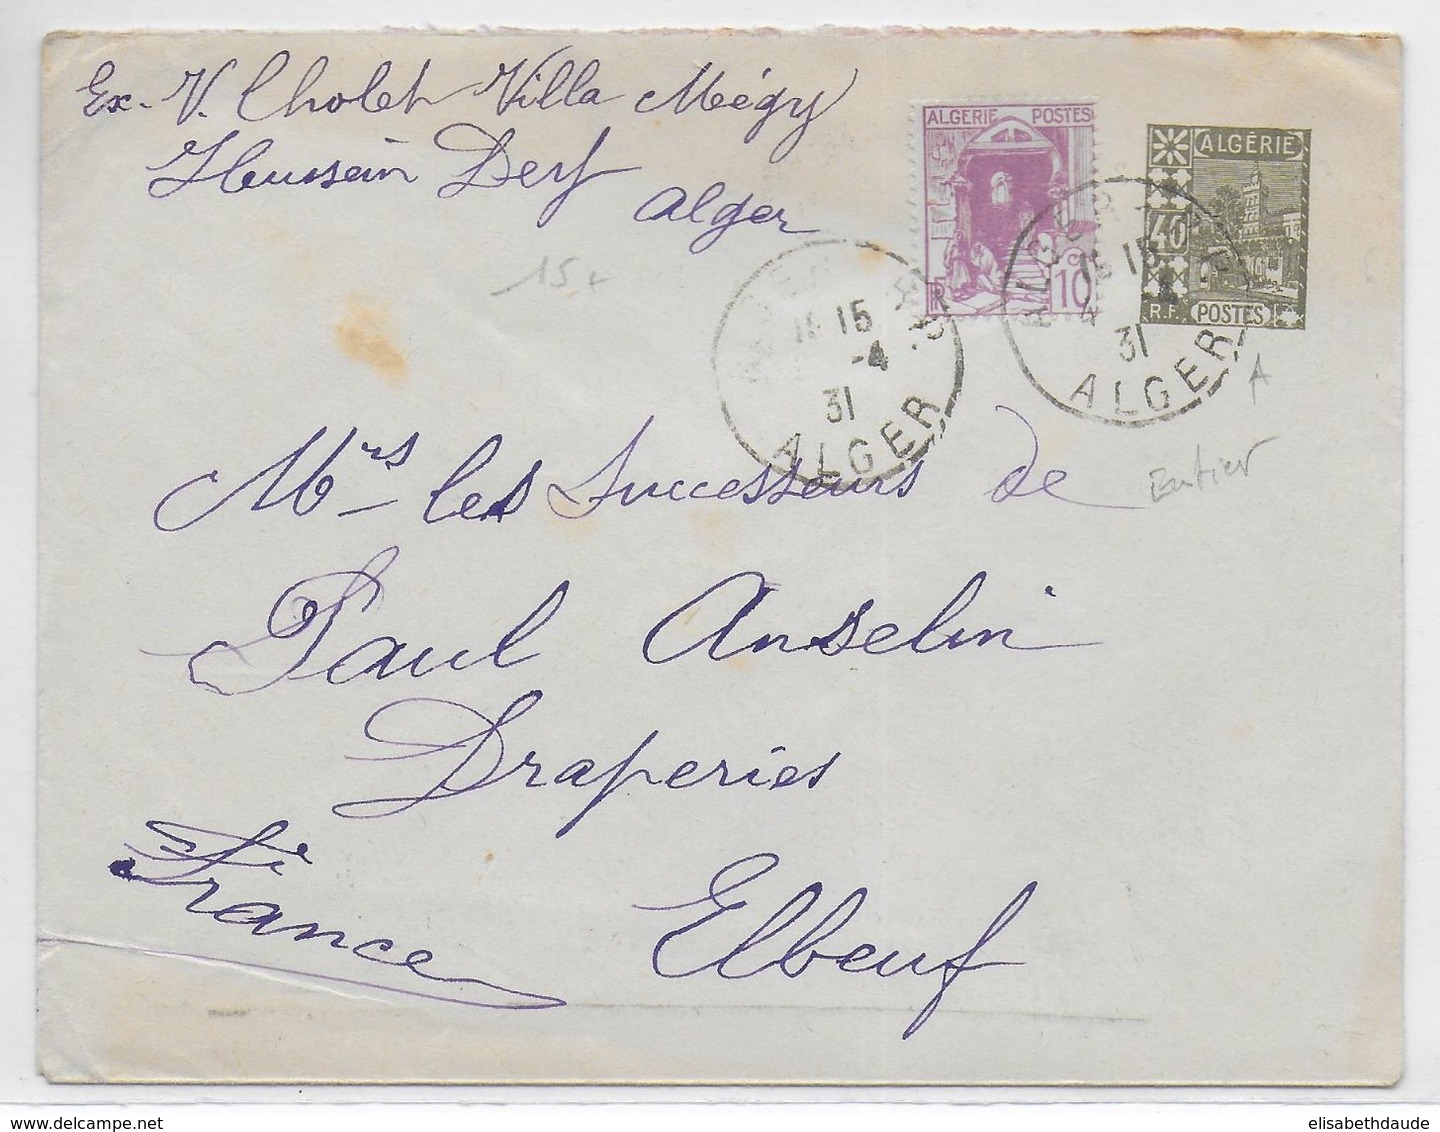 Ex. V. Cholet Villa Mégy
Hussein Dey
Alger
ALGERIE POSTES
C. 10
RF
ALGÉRIE
40
R.F. POSTES
15 +
15
-4
31
ALGER
ALGER
15 15
4
31
ALGER
A
Entier
Mrs les Successeurs de
Paul Anselin
Draperies
Elbeuf
France
delcampe.net
elisabethdaude